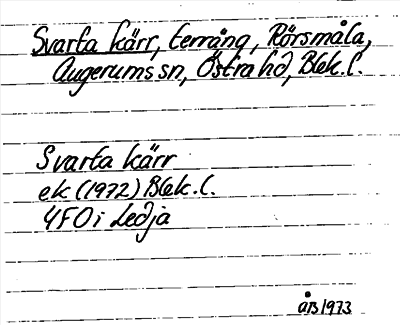 Svarta kärr, terräng, Rörsmåla,
Augerums sn, Östra hd, Blek. l.
Svarta kärr
ek (1972) Blek. l.
4FO i Ledja
ÅB 1973